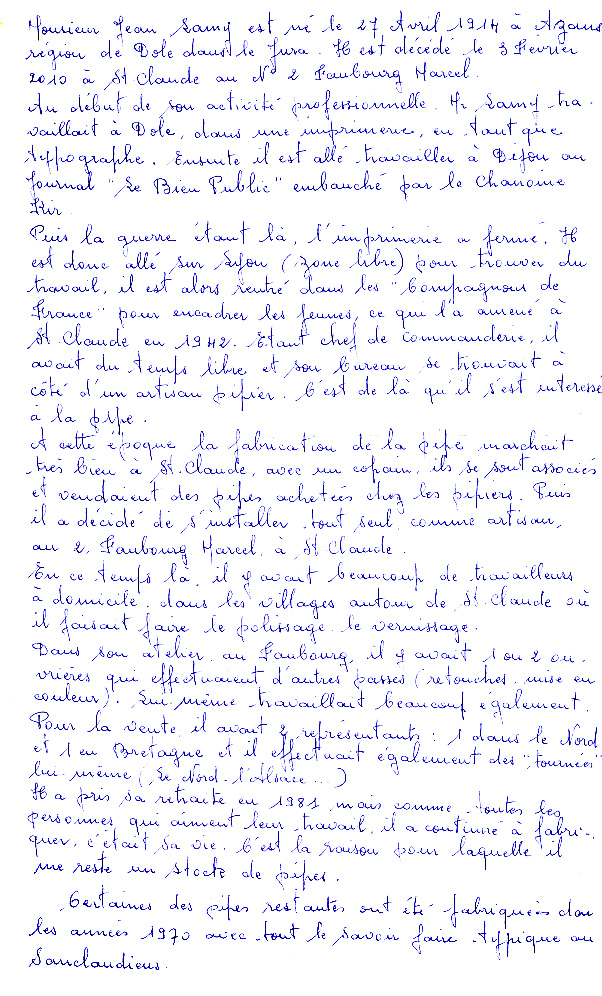 Monsieur Jean Lamy est né le 27 Avril 1914 à Azans
région de Dole dans le Jura. Il est décédé le 3 Février
2010 à St Claude au N° 2 Faubourg Marcel.
Au début de son activité professionnelle. Mr Lamy tra-
vaillait à Dole, dans une imprimerie, en tant que
typographe. Ensuite il est allé travailler à Dijon au
Journal "Le Bien Public" embauché par le Chanoine
Kir.
Puis la guerre étant là, l'imprimerie a fermé. Il
est donc allé sur Lyon (zone libre) pour trouver du
travail, il est alors rentré dans les "Compagnons de
France" pour encadrer les jeunes, ce qui l'a amené à
St Claude en 1942. Etant chef de commanderie, il
avait du temps libre et son bureau se trouvait à
côté d'un artisan pipier. C'est de là qu'il s'est interessé
à la pipe.
A cette époque la fabrication de la pipe marchait
très bien à St. Claude, avec un copain, ils se sont associés
et vendaient des pipes achetées chez les pipiers. Puis
il a décidé de s'installer tout seul comme artisan,
au 2, Faubourg Marcel, à St Claude.
En ce temps là, il y avait beaucoup de travailleurs
à domicile dans les villages autour de St. Claude où
il faisait faire le polissage le vernissage.
Dans son atelier au Faubourg, il y avait 1 ou 2 ou-
vrières qui effectuaient d'autres passes (retouches mise en
couleur). Lui même travaillait beaucoup également.
Pour la vente, il avait 2 représentants : 1 dans le Nord
et 1 en Bretagne et il effectuait également des "tournées"
lui même (Le Nord - l'Alsace...)
Il a pris sa retraite en 1981 mais comme toutes les
personnes qui aiment leur travail, il a continué à fabri-
quer, c'était sa vie. C'est la raison pour laquelle il
me reste un stock de pipes.
Certaines des pipes restantes ont été fabriquées dan
les années 1970 avec tout le savoir faire typique au
Sanclaudiens.